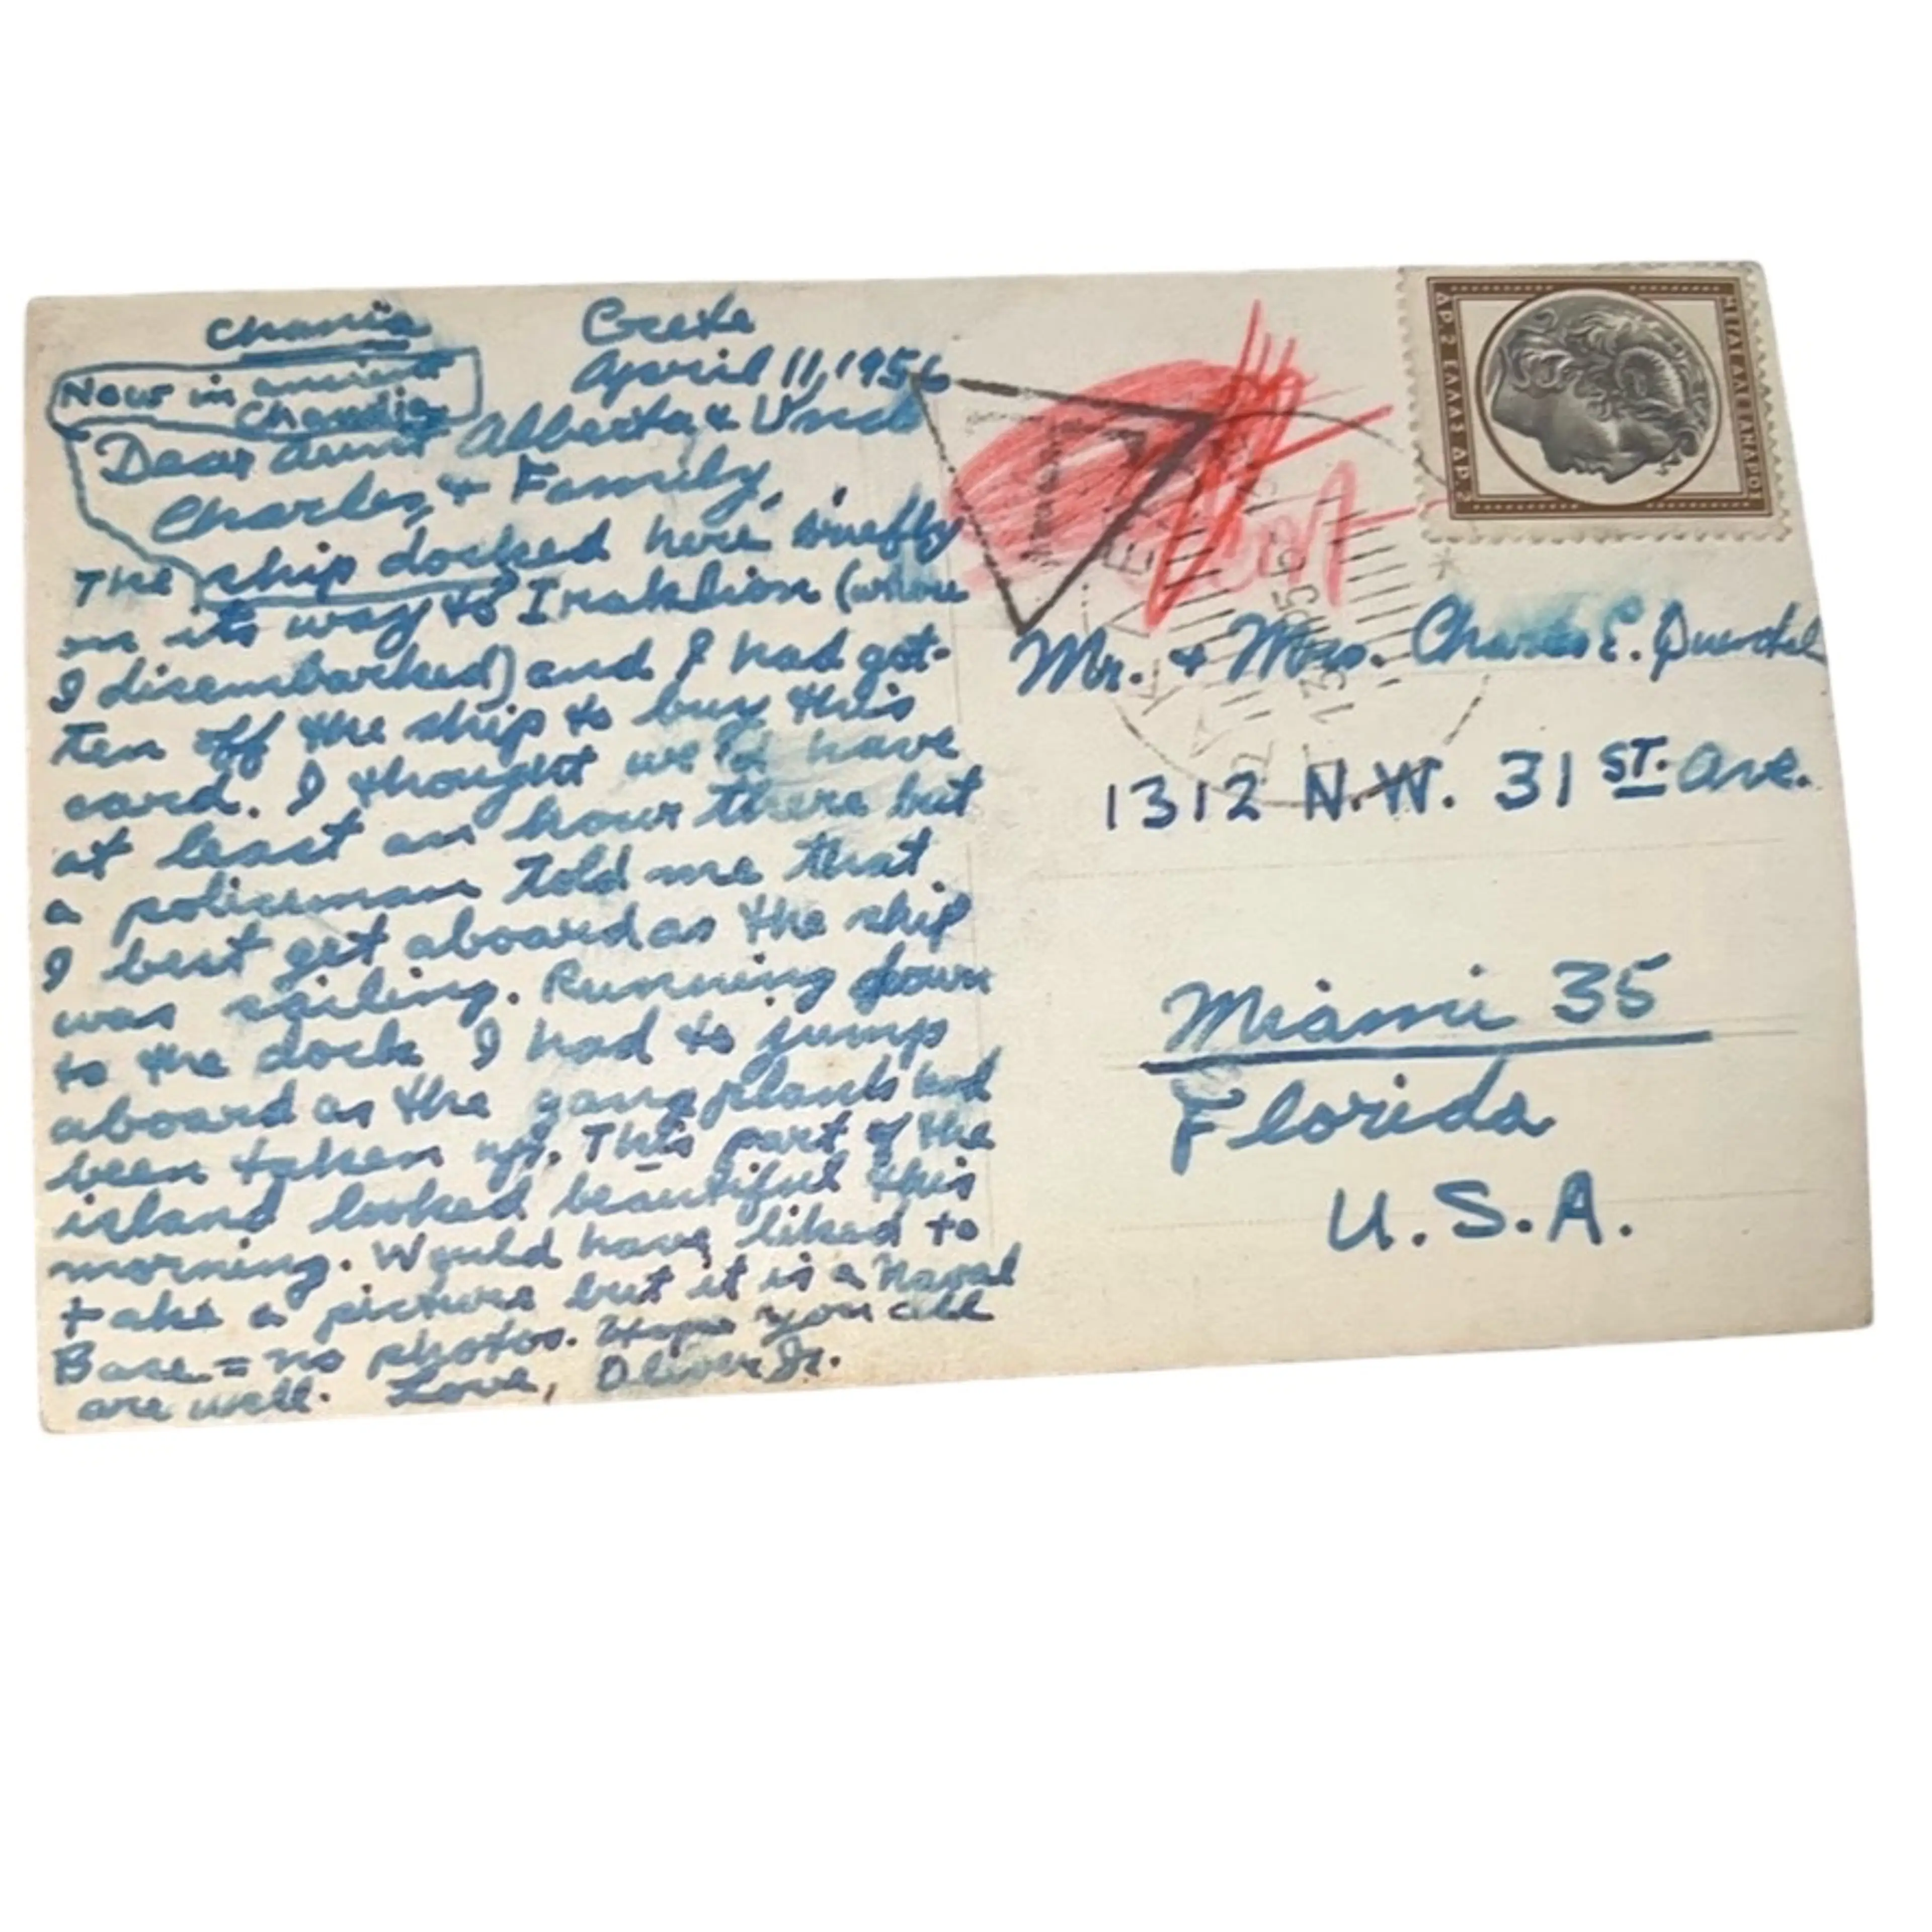 Chania Crete
April 11, 1956
Now in ancient
Chandia
Dear Aunt Alberta & Uncle
Charles, & Family,
The ship docked here briefly
on its way to Iraklion (where
I disembarked) and I had got-
ten off the ship to buy this
card. I thought we'd have
at least an hour there but
a policeman told me that
I best get aboard as the ship
was sailing. Running down
to the dock I had to jump
aboard as the gangplank had
been taken up. This part of the
island looked beautiful this
morning. Would have liked to
take a picture but it is a Naval
Base = no photos. Hope you all
are well. Love, Oliver Jr.
ΜΕΓΑΣ ΑΛΕΞΑΝΔΡΟΣ
ΔΡ. 2 ΕΛΛΑΣ ΔΡ. 2
T
Mr. & Mrs. Charles E.
1312 N.W. 31 ST. Ave.
Miami 35
Florida
U.S.A.